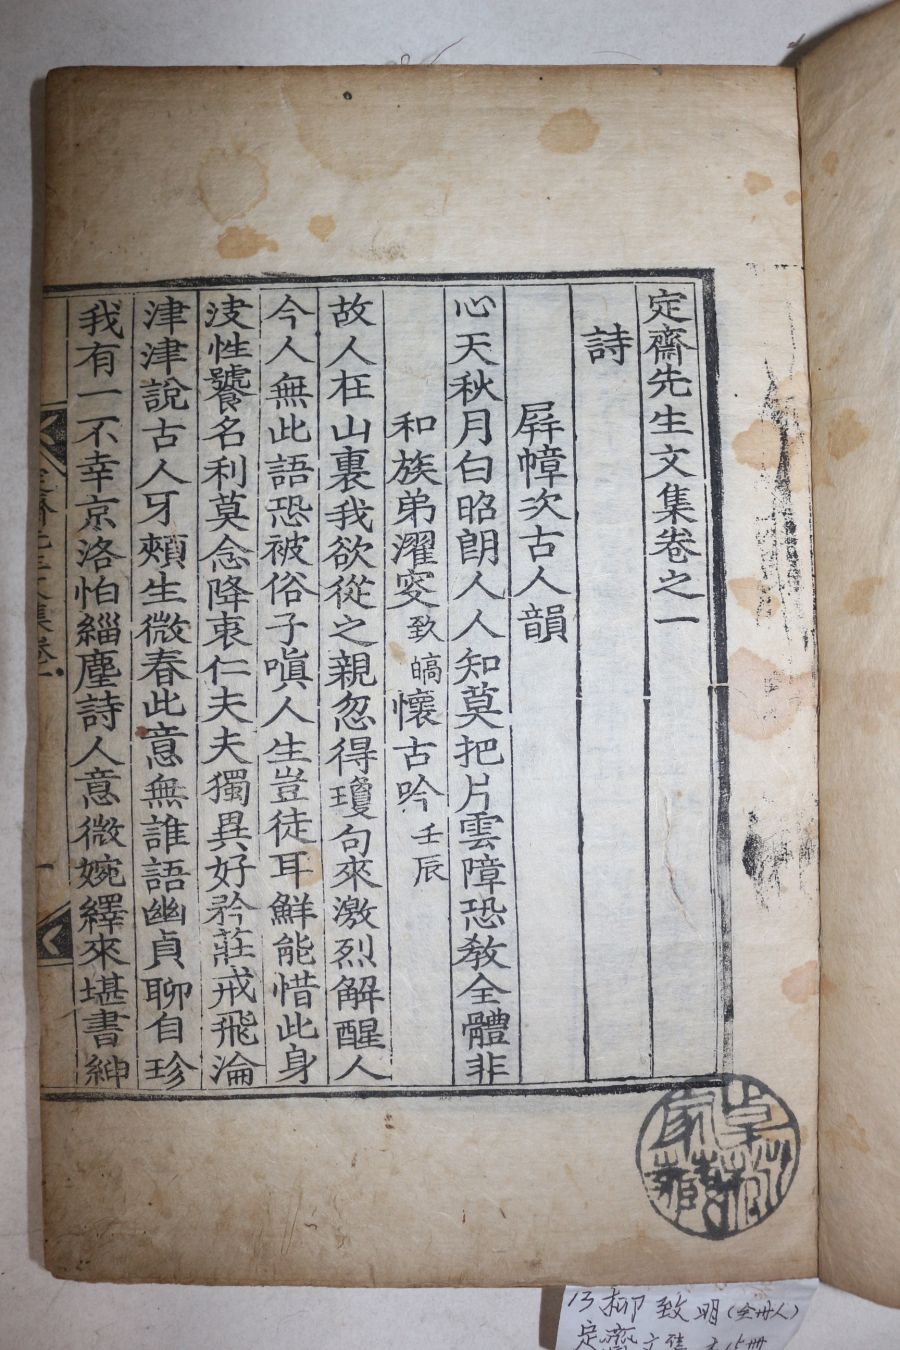 定齋先生文集卷之一
詩
屛幛次古人韻
心天秋月白昭朗人人知莫把片雲障恐敎全體非
和族弟濯叟致皜懷古吟壬辰
故人在山裏我欲從之親忽得瓊句來激烈解醒人
今人無此語恐被俗子嗔人生豈徒耳鮮能惜此身
淩性饕名利莫念降衷仁夫夫獨異好矜莊戒飛淪
津津說古人牙頰生微春此意無誰語幽貞聊自珍
我有一不幸京洛怕緇塵詩人意微婉繹來堪書紳
定齋先生文集卷一
一
13 柳致明(全州人)
定齋文集